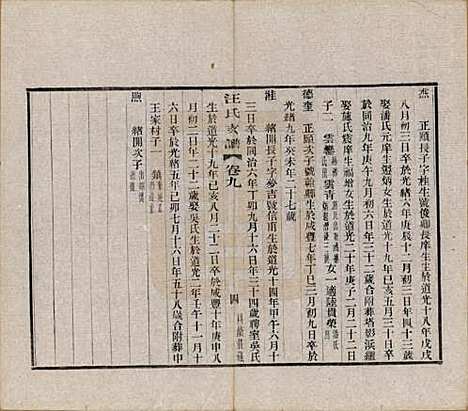 杰 正頤長子字桂生號俊卿長庠生生於道光十八年戊戌
八月初三日卒於光緒六年庚辰十二月初三日年四十三歲
娶潘氏元庠生
女生於道光十九年己亥五月三日
卒於同治九年庚午九月初六日年三十二歲合附葬塔影浜
娶施氏震庠生福增女生於道光二十年庚子二月二十二日
子二 雲
雲青
女一適陸貴榮
德奎 正頤次子號翰卿生於咸豐七年丁巳三月初九日卒於
光緒九年癸未年二十七歲
湝 緒開長子字夢吉號信甫生於道光十四年甲午六月十
三日卒於同治六年丁卯九月十六日年三十四歲聘室吳氏
汪氏支譜 卷九 四
生於道光十九年己亥八月二十二日卒於咸豐十年庚申八
月初二日年二十二歲娶吳氏生於道光二年壬午十一月十
六日卒於光緒五年己卯七月十六日年五十八歲合附葬中
王家村子一
煦 緒開次子